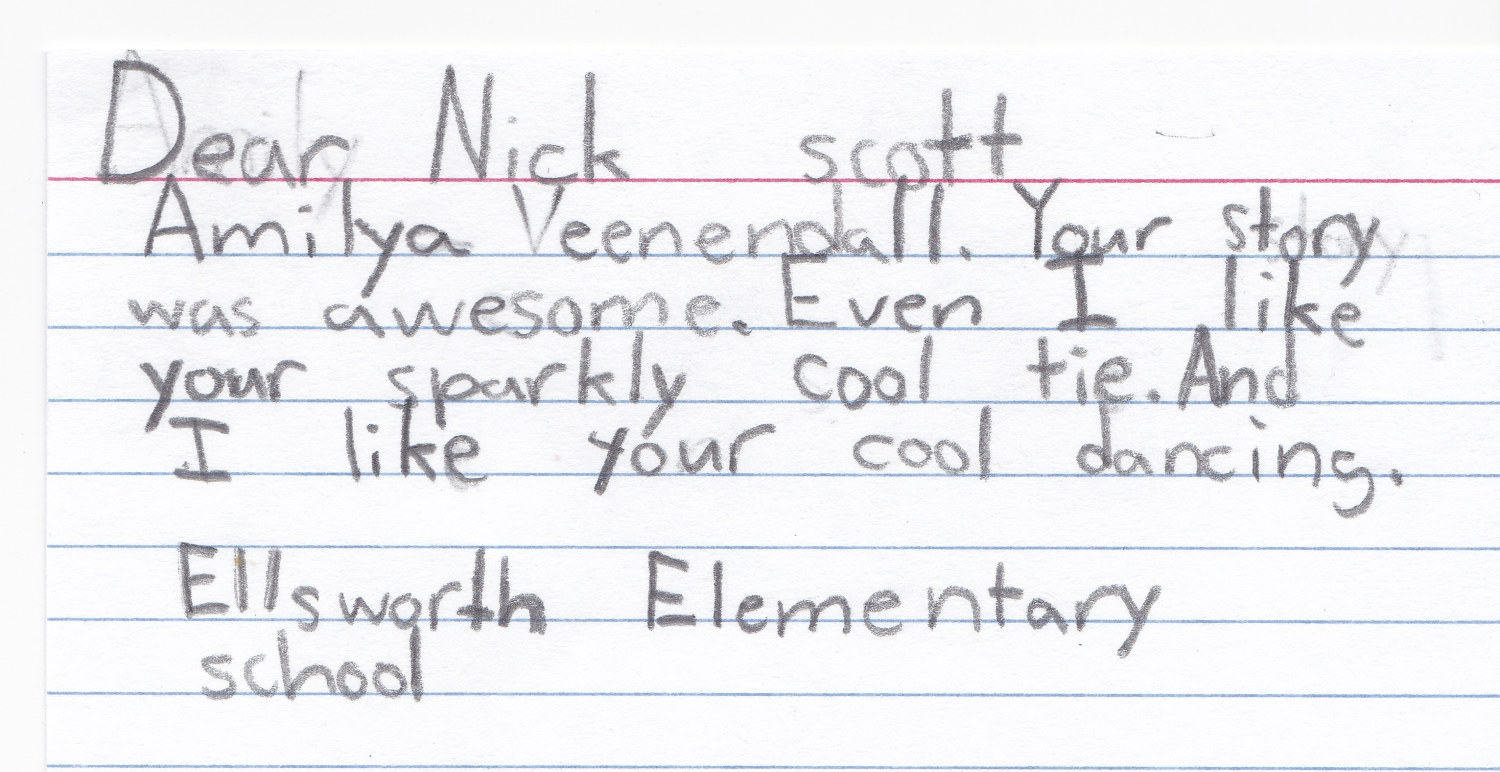 Dear Nick scott
Amilya Veenendall. Your story
was awesome. Even I like
your sparkly cool tie. And
I like your cool dancing.
Ellsworth Elementary
school